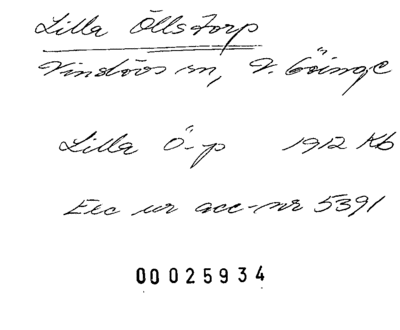 Lilla Öllstorp
Vinslövs sn, V. Göinge
Lilla Ö-p 1912 Kb
Exc ur acc-nr 5391
00025934